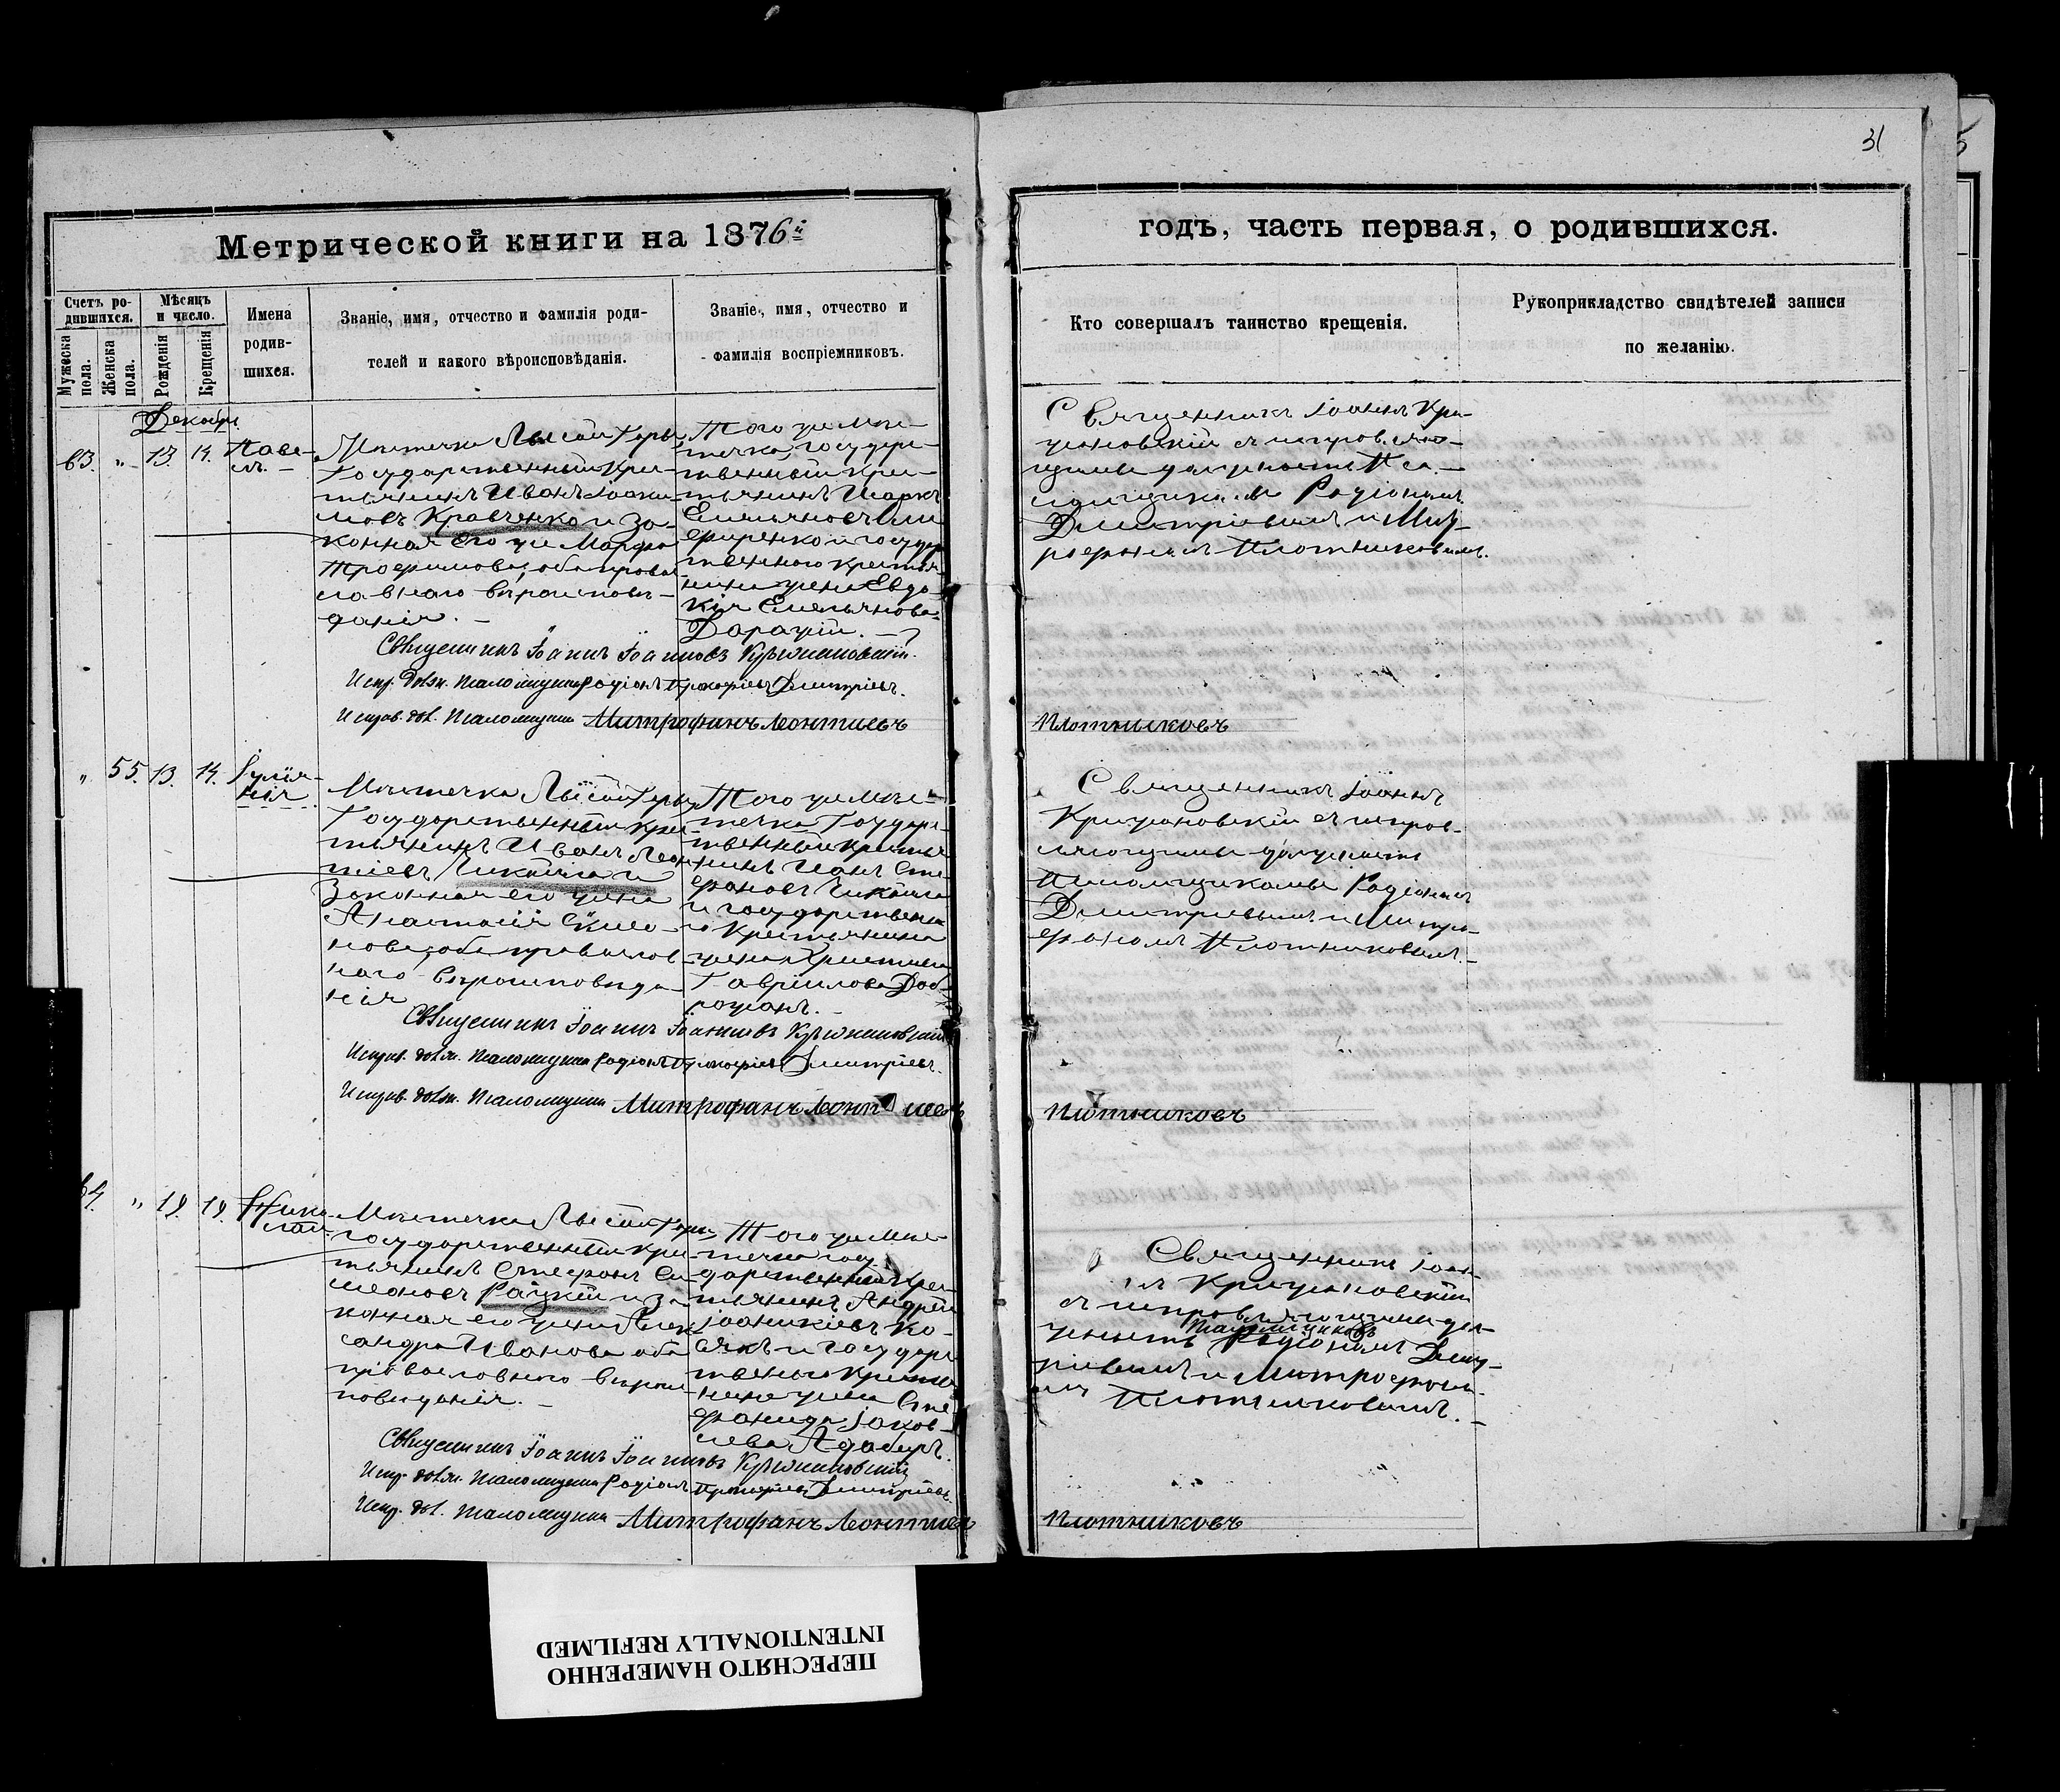 31
Метрической книги на 1876й
годъ, часть первая, о родившихся.
Счетъ ро-
дившихся.
Мужеска
пола.
Женска
пола.
Мѣсяцъ
и число.
Рожденія
Крещенія
Имена
родив-
шихся.
Званіе, имя, отчество и фамилія роди-
телей и какого вѣроисповѣданія.
Званіе, имя, отчество и
фамилія воспріемниковъ.
Кто совершалъ таинство крещенія.
Рукоприкладство свидѣтелей записи
по желанію.
Декабрь
63. " 13. 14. Паве-
лъ.
Мѣстечка Лысой Горы
Государственный Кре-
стьянинъ Иванъ Іоаки-
мовъ Кравченко и за-
конная его же Марфа
Трофимова, оба право-
славнаго вѣроисповѣ-
данія.
Того же мѣс-
течка государс-
твенный Кре-
стьянинъ Маркъ
Емельяновъ
и государ
твенного крестья-
нина жена Евдо-
кія Емельянова
Дараций.
Священникъ Іоаннъ Кри-
жановскій съ исправляю-
щими должность Пса-
ломщика Родіономъ
Дмитріевымъ и Мит-
рофаномъ Плотниковымъ.
Священникъ Іоаннъ Іоанновъ Крыжановскій.
Испр. долж. Псаломщика Родіонъ Прокофіевъ Дмитріевъ.
Исправ. дол. Псаломщика Митрофанъ Леонтьевъ Плотниковъ
" 55. 13. 14. Іулія-
нія
Мѣстечка Лысой Горы
Государственный Кре-
стьянинъ Иванъ Леон-
тіевъ Чикайла и
Законная его жена
Анастасія Симо-
нова, оба православ
наго вѣроисповѣда-
нія
Того же Мѣс-
течка Государс-
твенный крестья
нинъ Иванъ Сте
фановъ Чикайла
и государствена
го Крестьянина
жена Христина
Гавріилова Доб-
рожанъ.
Священникъ Іоаннъ
Крижановскій съ исправ-
ляющими должность
Псаломщиками Родіономъ
Дмитріевымъ и Митро-
фаномъ Плотниковымъ.
Священникъ Іоаннъ Іоанновъ Крыжановскій
Исправ. долж. Псаломщика Родіонъ Прокофіевъ Дмитріевъ.
Исправ. долж. Псаломщика Митрофанъ Леонтіевъ Плотниковъ
64. " 19. 19. Нико-
лай.
Мѣстечка Лысой Горы
государственный кре-
стьянинъ Стефанъ Си-
меоновъ Рацкій и за-
конная его жена Алек
сандра Иванова оба
православного вѣроис
повѣданія.
Того же Мѣс-
течка госу
дарственный кре-
стьянинъ Андрей
Іоаникіевъ Ко-
сякъ и государс
твеного Крестья
нина жена Сте-
фанида Іаков-
лева Адаберъ.
Священникъ Іоан-
нъ Крижановскій
съ исправляющими дол-
жность Псаломщиковъ Родіономъ Дмит-
ріевымъ и Митрофано-
мъ Плотниковымъ.
Священникъ Іоаннъ Іоанновъ Крыжановскій
Испр. долж. Псаломщика Родіонъ Прокофіевъ Дмитріевъ.
Испр. дол. Псаломщика Митрофанъ Леонтіевъ Плотниковъ
ПЕРЕСНЯТО НАМЕРЕННО
INTENTIONALLY REFILMED